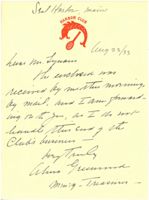 Seal Harbor, Maine
HARBOR CLUB
Aug 23/33
Dear Mr. Lynam
The enclosed was
received by me this morning
by mail, and I am forward-
ing it to you, as I do not
handle this end of the
Club's business
Very Truly
Greenwood
Treasurer